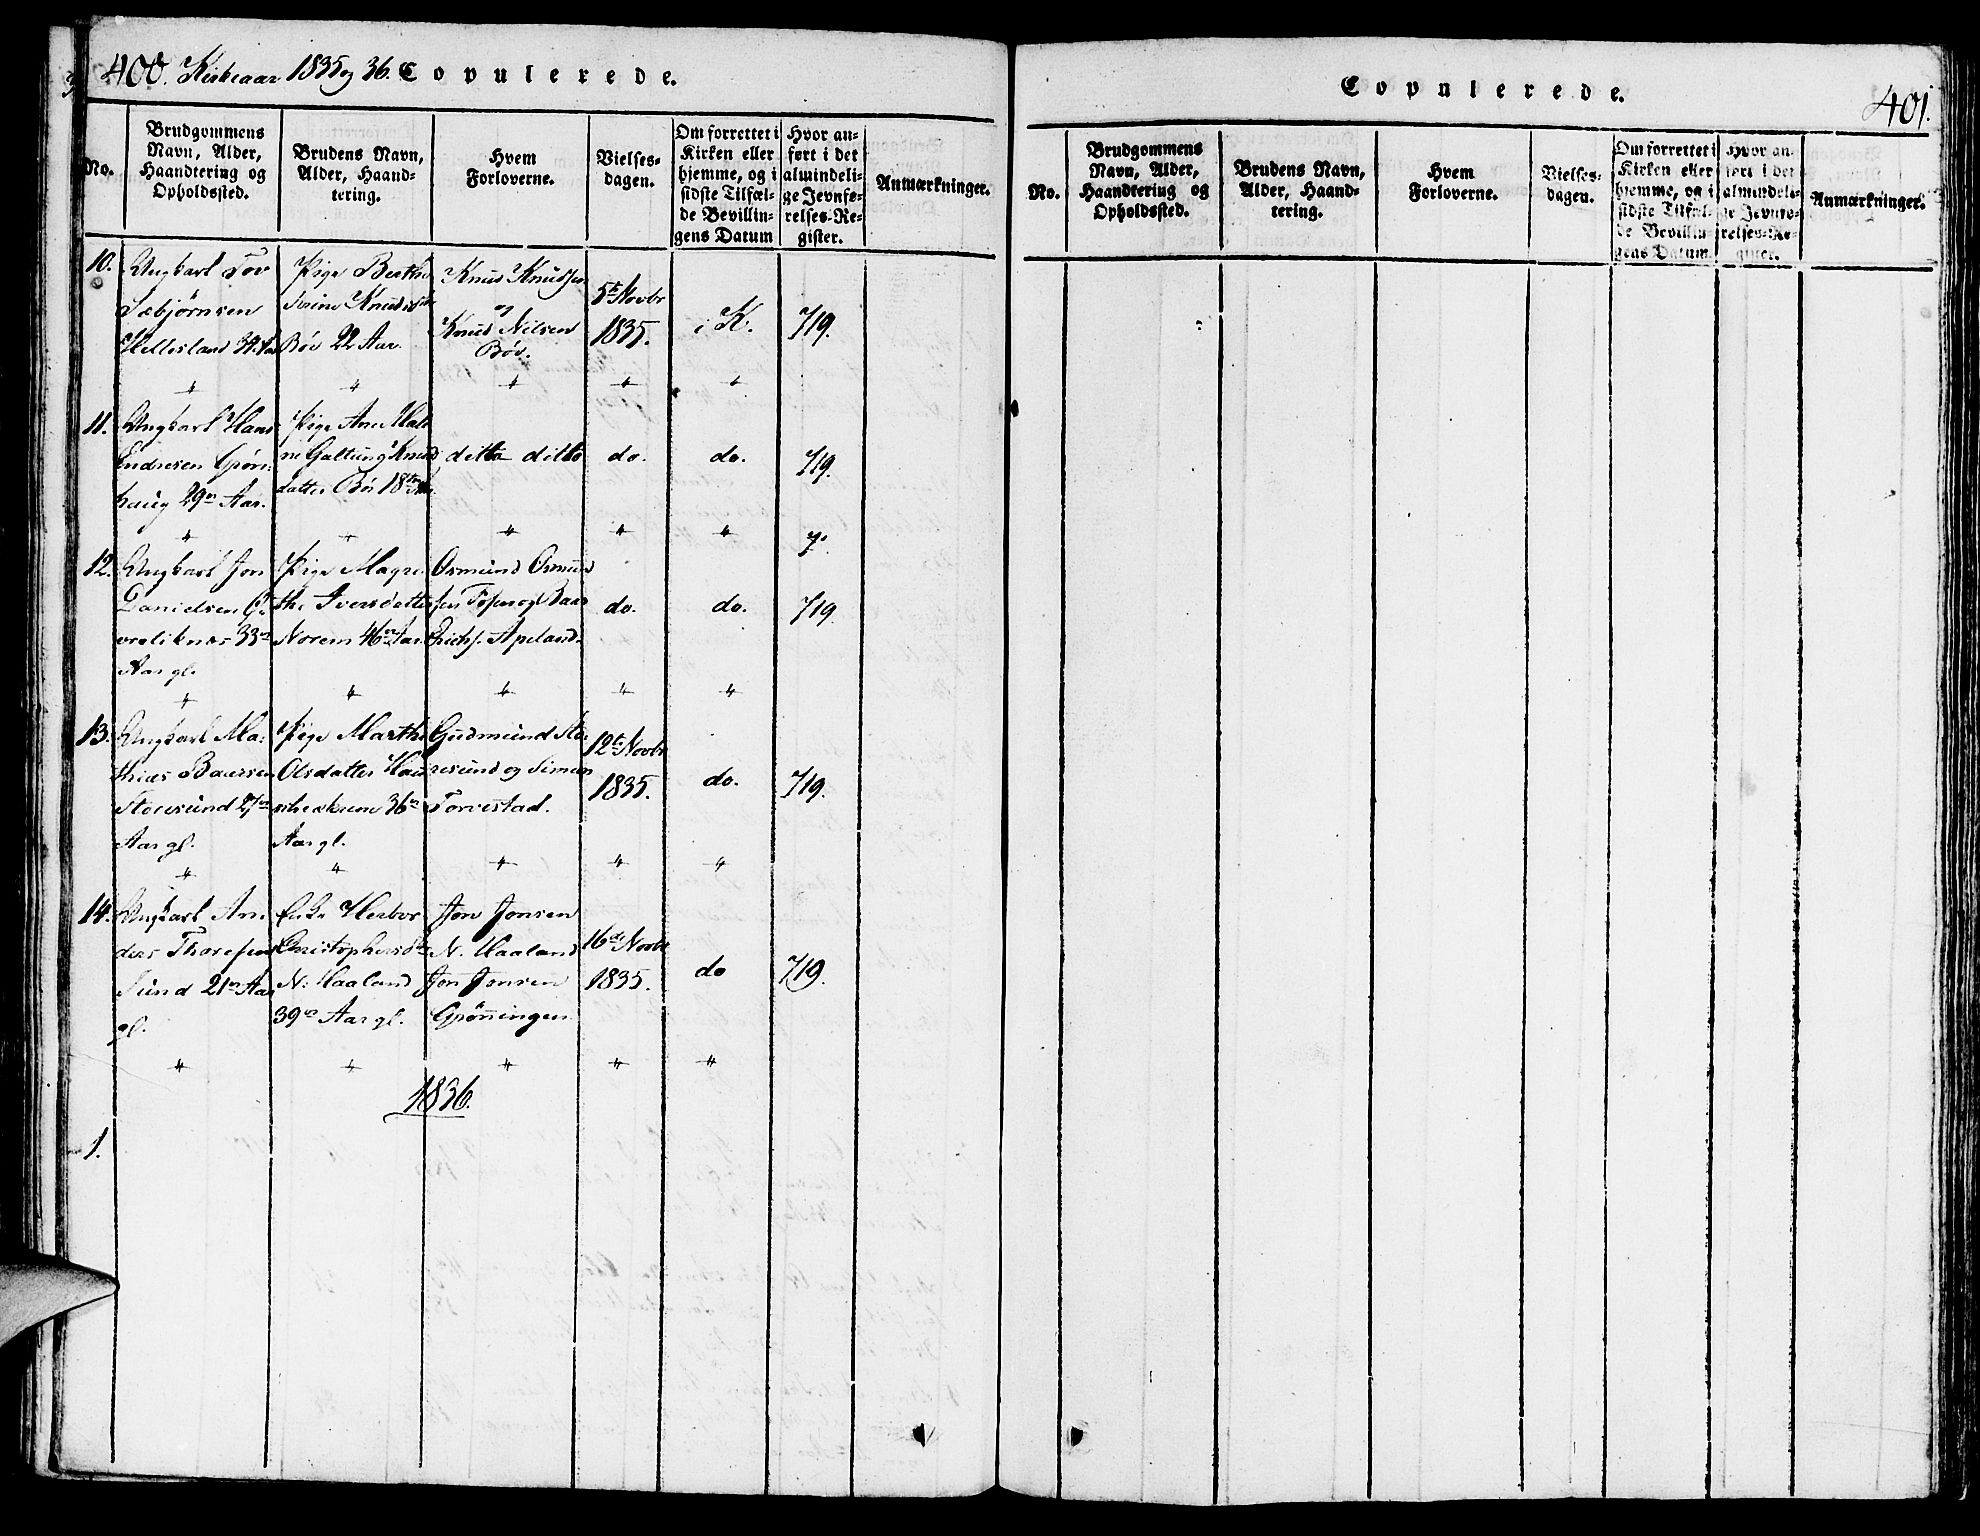 400. Kirkeaar 1835 og 36. Copulerede.
No.
Brudgommens
Navn, Alder,
Haandtering og
Opholdssted.
Brudens Navn,
Alder, Haand-
tering.
Hvem
Forloverne.
Vielses-
dagen.
Om forrettet i
Kirken eller
hjemme, og i
sidste Tilfæl-
de Bevillin-
gens Datum
Hvor an-
ført i det
almindeli-
ge Jevnfø-
relses-Re-
gister.
Anmærkninger.
10.
Ungkarl Tov
Sæbjørnsen
Hellesland
Pige Berthe
Knudsdtr
Bøe 22 Aar.
Knud Knudsen
og
Knud Nilsen
Bøe.
5te Novbr
1835.
i K.
719.
11.
Ungkarl Hans
Endresen Grøn-
haug 29de Aar.
Pige Ane Mal-
ne Galtung Knuds
datter Bøe 18
ditto ditto
do.
do.
719.
12.
Ungkarl Jon
Danielsen
33
Aar gl.
Pige Magre-
the Iversdatter
Norem 46 Aar
Osmund Osmund
sen og Baar
Erichs. Apeland.
do.
do.
719.
13.
Ungkarl Ma-
thias Baarsen
Storesund 27
Aar gl.
Pige Marthe
Olsdatter Hau
skeskrem 36
Aar gl.
Gudmund Sto-
resund og Simon
Torvestad.
12te Novbr
1835.
do.
719.
14.
Ungkarl An-
ders Thoresen
Sund 21 Aar
gl.
Enke Herbor
Christophersdtr
N. Haaland
39 Aar gl.
Jon Jonsen
N. Haaland
Jon Jonsen
Grønningen
16de Novbr
1835.
do
719.
1836.
1.
Copulerede.
401.
No.
Brudgommens
Navn, Alder,
Haandtering og
Opholdssted.
Brudens Navn,
Alder, Haand-
tering.
Hvem
Forloverne.
Vielses-
dagen.
Om forrettet i
Kirken eller
hjemme, og i
sidste Tilfæl-
de Bevillin-
gens Datum.
Hvor an-
ført i det
almindeli-
ge Jevnfø-
relses-Re-
gister.
Anmærkninger.